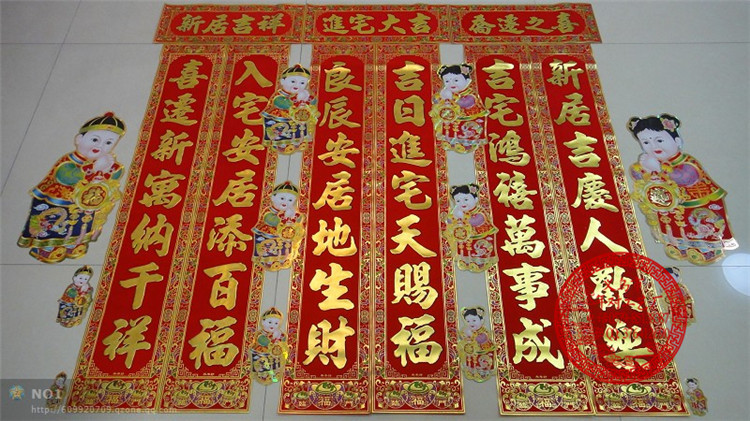 新居吉祥
進宅大吉
喬遷之喜
喜遷新寓納千祥
入宅安居添百福
良辰安居地生財
吉日進宅天賜福
吉宅鴻禧萬事成
新居吉慶人歡樂
福
福
福
NO1
http://609920709.qzone.qq.com